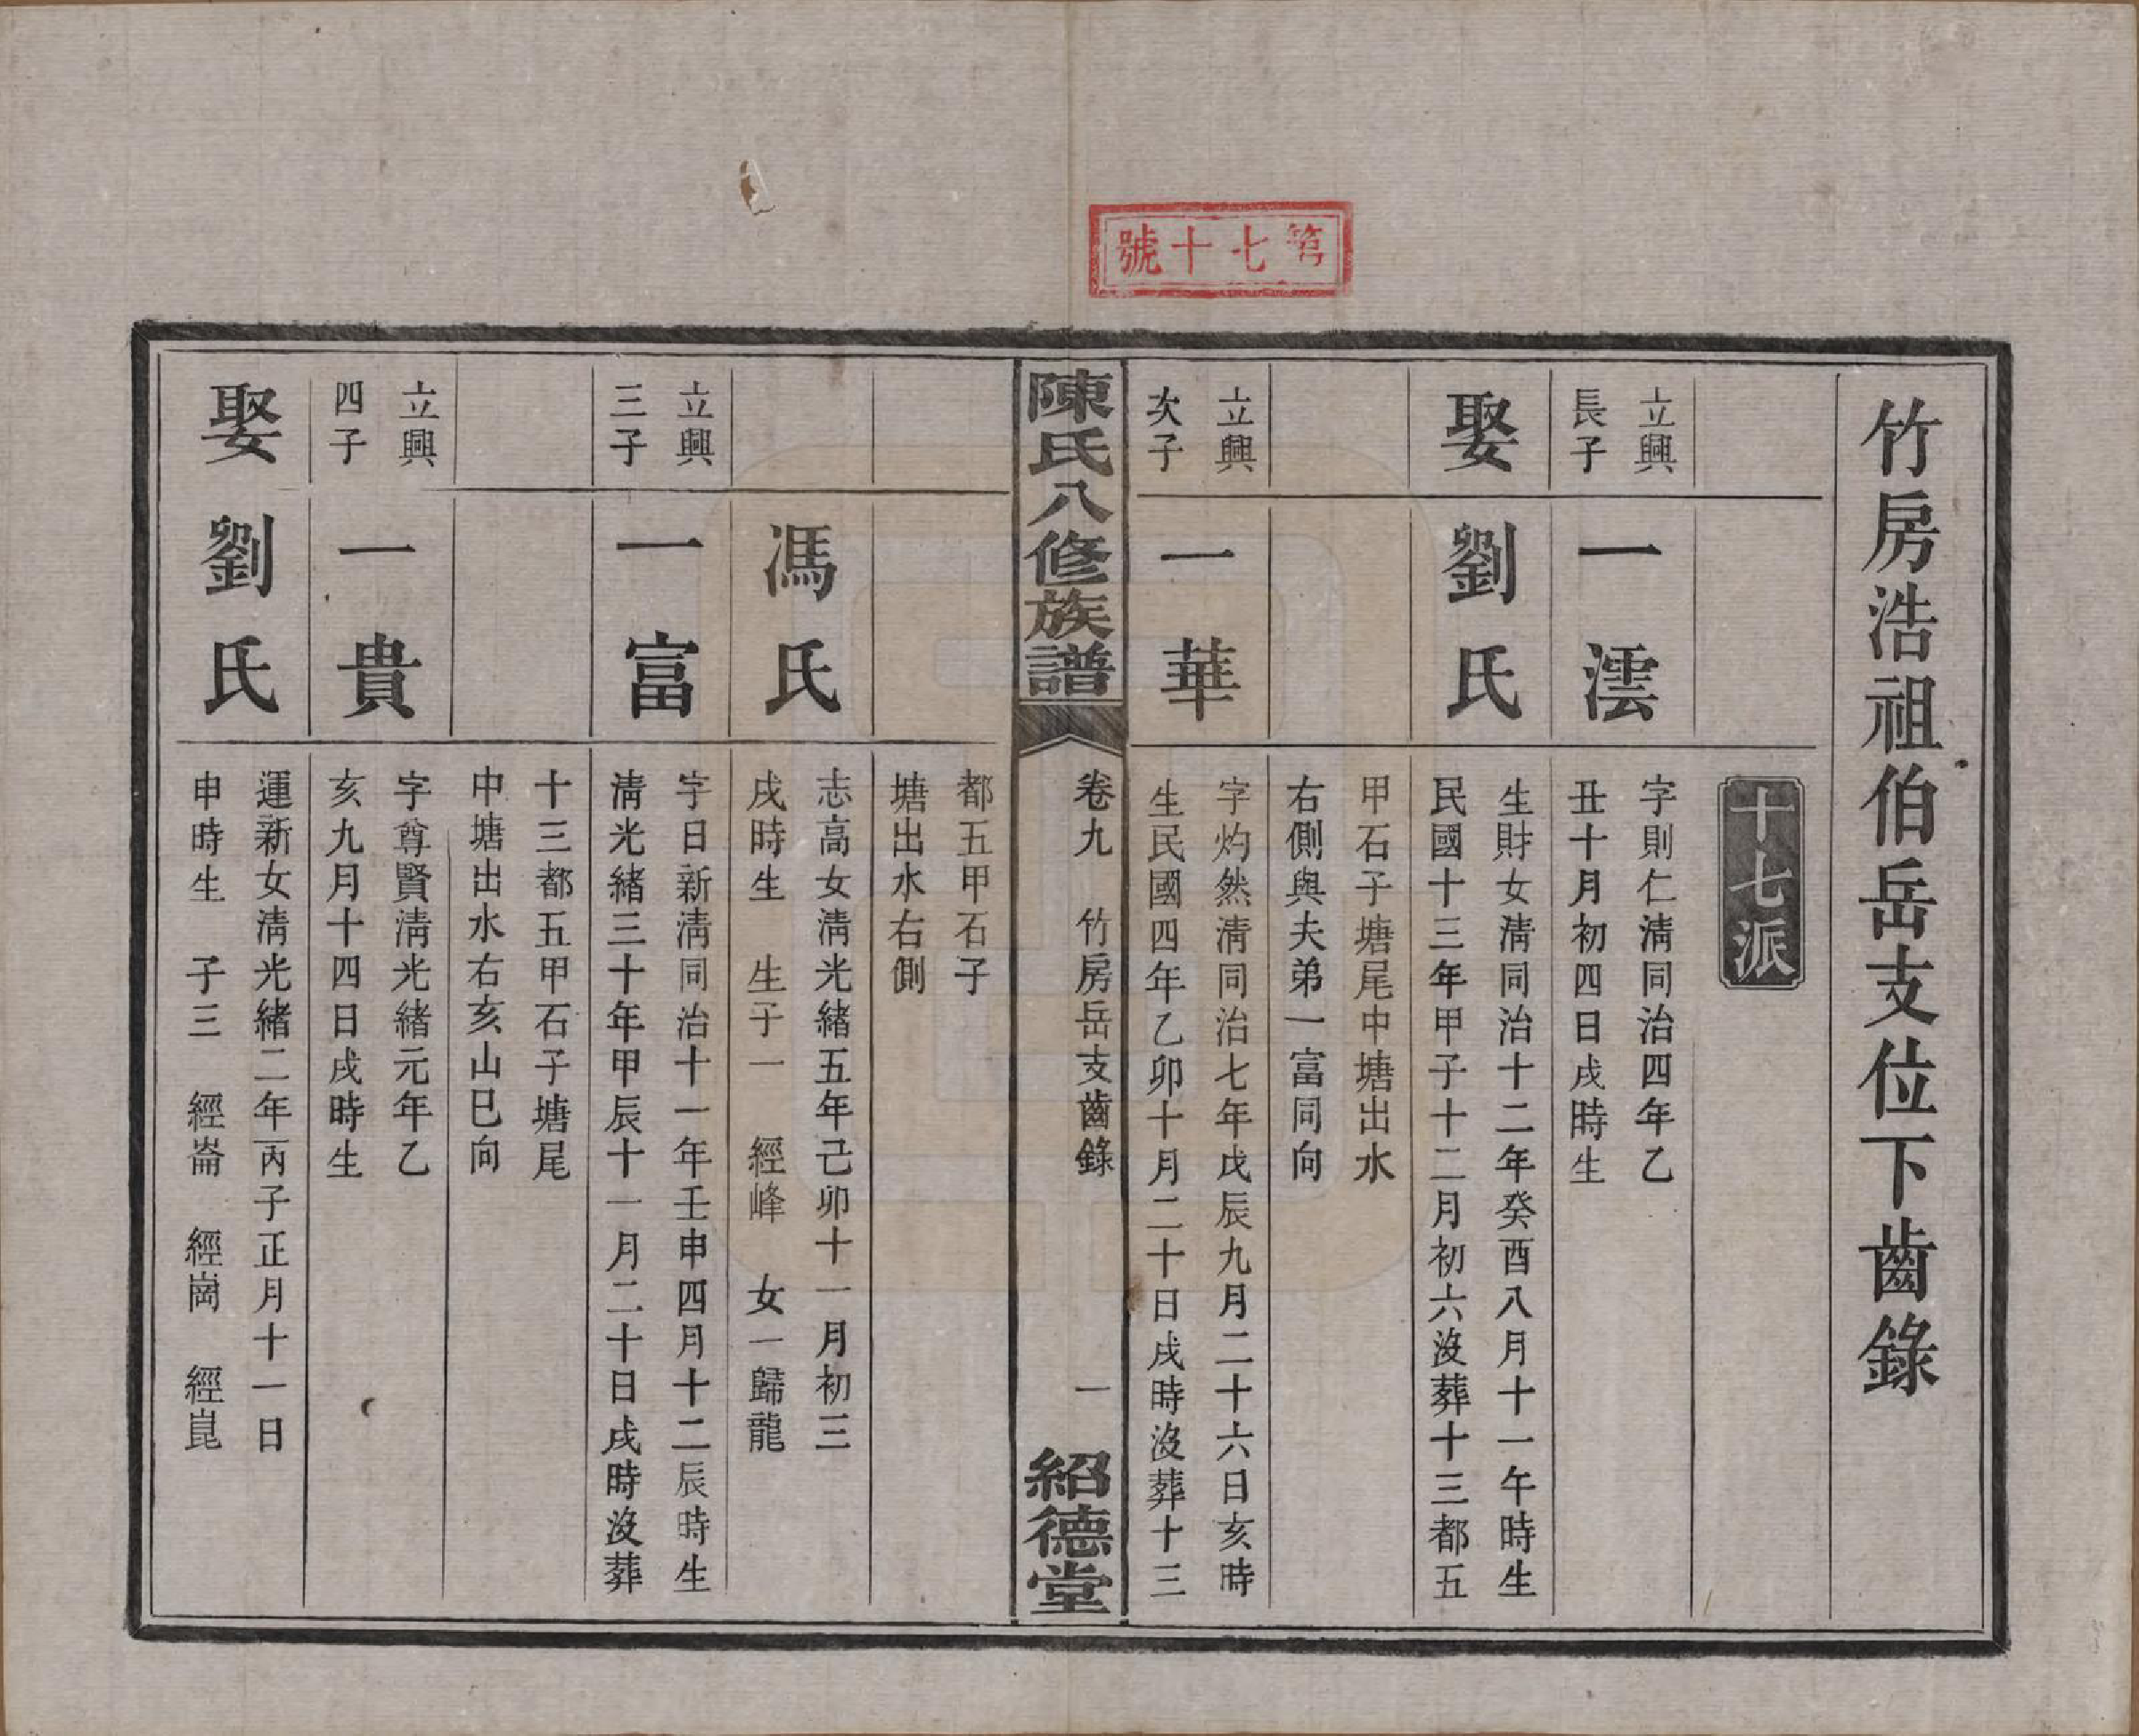 第七十號
竹房浩祖伯岳支位下齒錄
十七派
立興
長子
一澐
字則仁淸同治四年乙
丑十月初四日戌時生
娶
劉氏
生財女淸同治十二年癸酉八月十一午時生
民國十三年甲子十二月初六沒葬十三都五
甲石子塘尾中塘出水
右側與夫弟一富同向
立興
次子
一華
字灼然淸同治七年戊辰九月二十六日亥時
生民國四年乙卯十月二十日戌時沒葬十三
陳氏八修族譜
卷九 竹房岳支齒錄
一
紹德堂
都五甲石子
塘出水右側
馮氏
志高女淸光緒五年己卯十一月初三
戌時生 生子一 經峰 女一歸龍
立興
三子
一富
字日新淸同治十一年壬申四月十二辰時生
淸光緒三十年甲辰十一月二十日戌時沒葬
十三都五甲石子塘尾
中塘出水右亥山巳向
立興
四子
一貴
字尊賢淸光緒元年乙
亥九月十四日戌時生
娶
劉氏
運新女淸光緒二年丙子正月十一日
申時生 子三 經崙 經崗 經崑